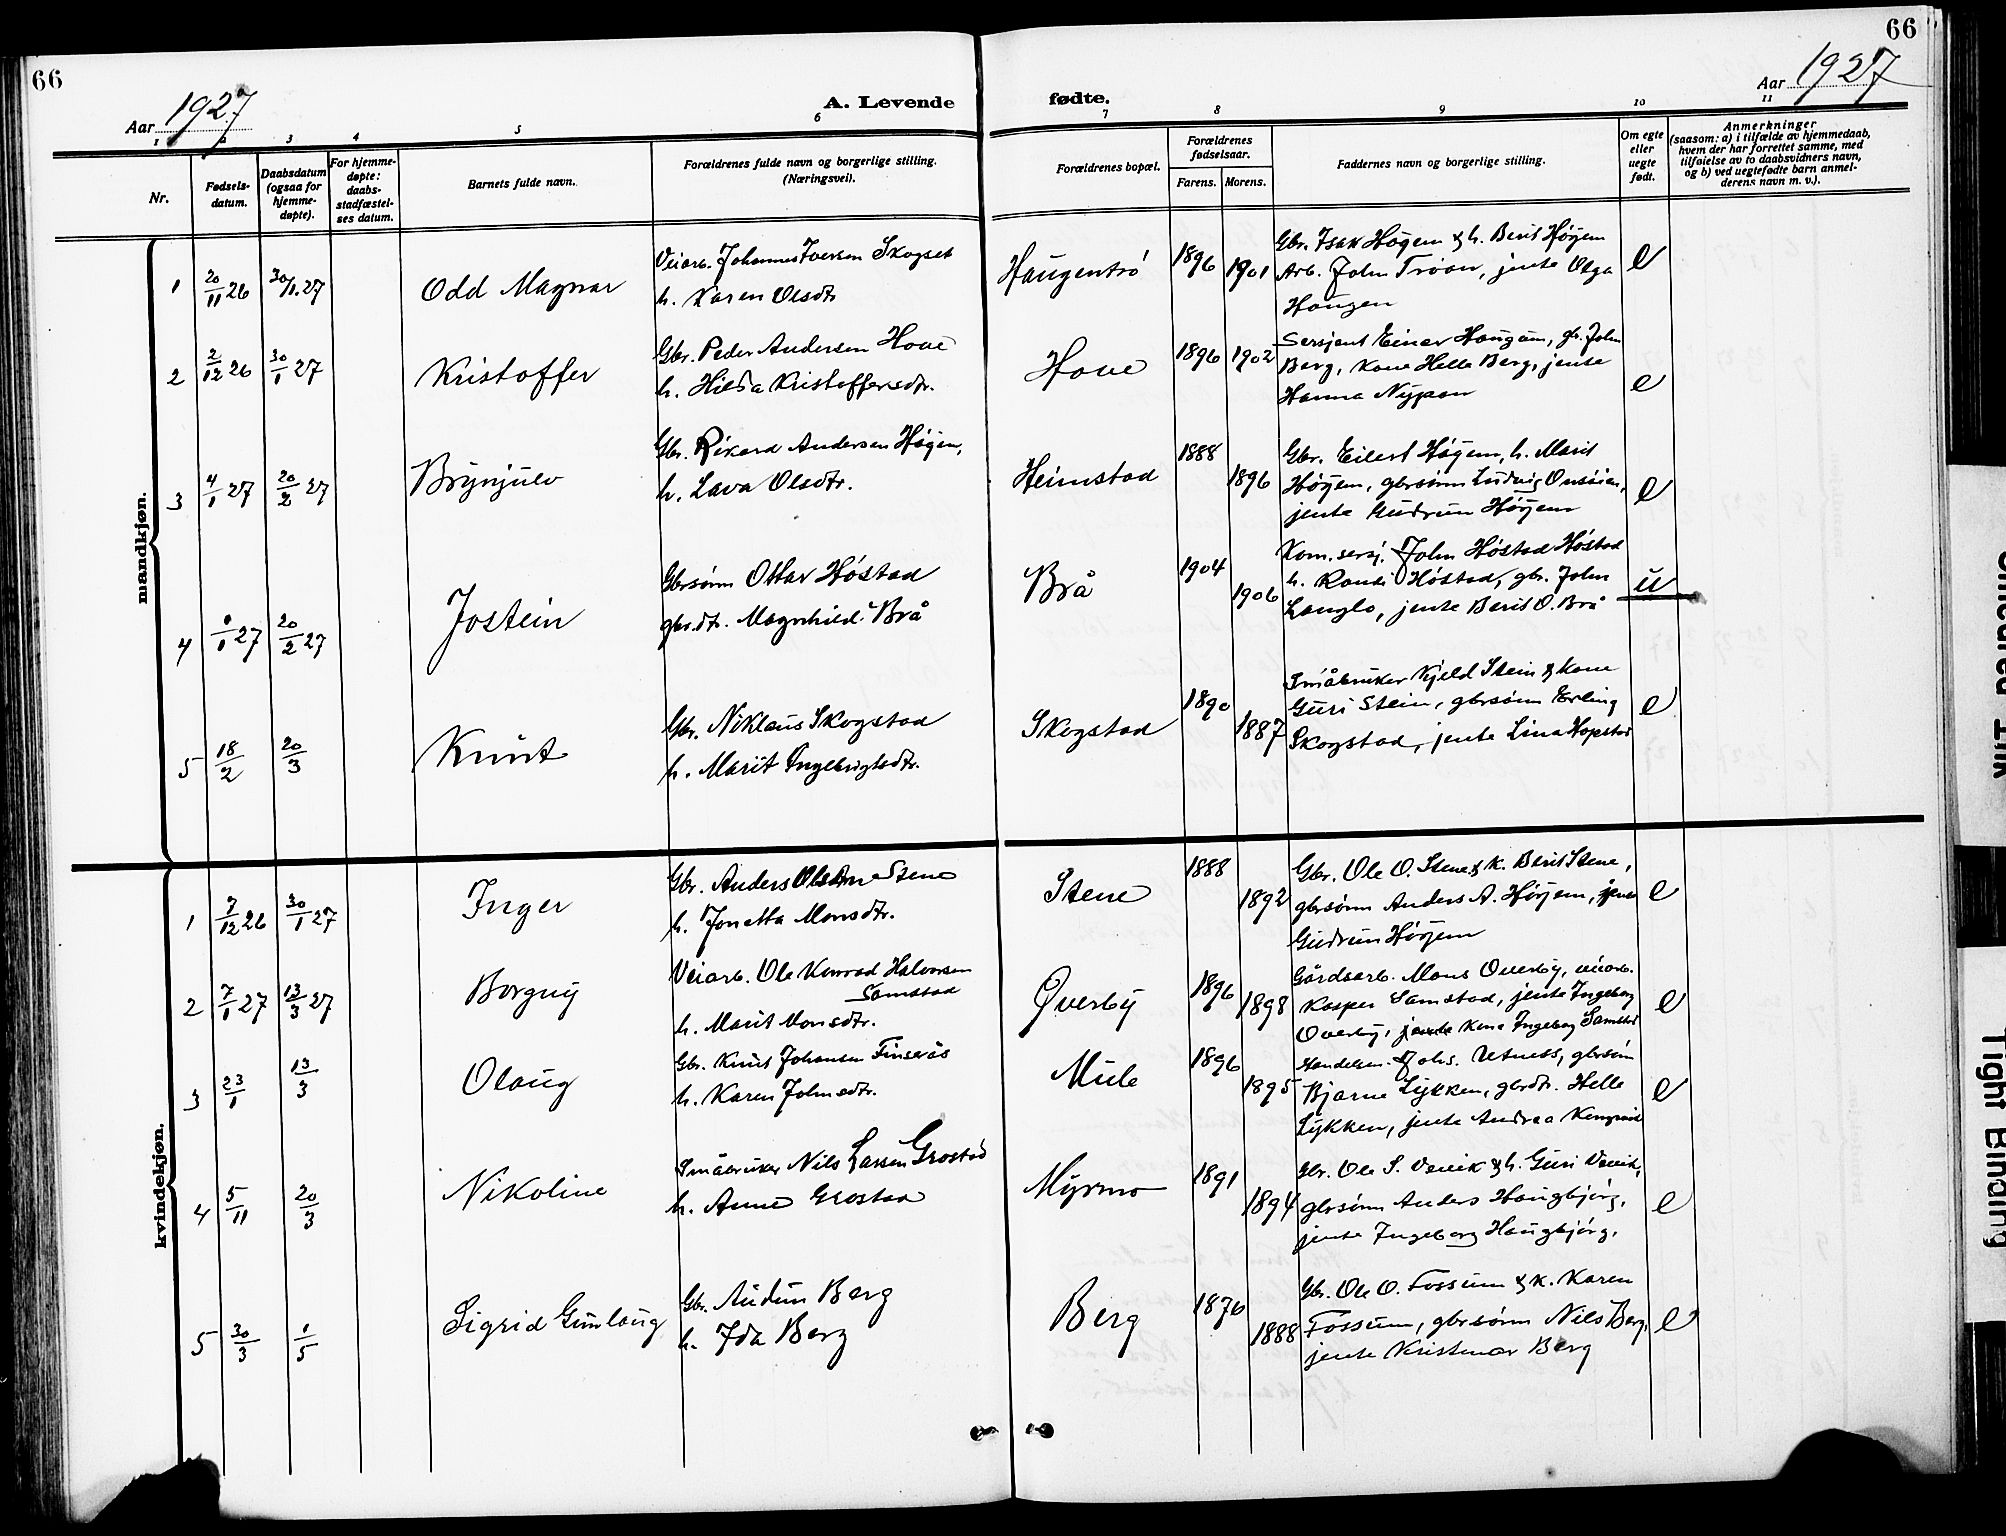 66
66
Aar 1927
A. Levende
fødte.
Aar 1927
1
2
3
4
5
6
7
8
9
10
11
Nr.
Fødsels-
datum.
Daabsdatum
(ogsaa for
hjemme-
døpte).
For hjemme-
døpte:
daabs-
stadfæstel-
ses datum.
Barnets fulde navn.
Forældrenes fulde navn og borgerlige stilling.
(Næringsvei).
Forældrenes bopæl.
Forældrenes
fødselsaar.
Farens.
Morens.
Faddernes navn og borgerlige stilling.
Om egte
eller
uegte
født.
Anmerkninger
(saasom: a) i tilfælde av hjemmedaab,
hvem der har forrettet samme, med
tilføielse av to daabsvidners navn,
og b) ved uegtefødte barn anmel-
derens navn m. v.).
mandkjøn.
1
20/11 26
30/1.27
Odd Magnar
Veiarb. Johannes Iversen Skogset
h. Karen Olsdtr
Haugentrö
1896
1901
Gbr. Isak Högem & h. Berit Høyem
Arb. John Tröan, jente Olga
Haugen
e
2
2/12 26
30/1 27
Kristoffer
Gbr. Peder Andersen Hove
h. Hilda Kristoffersdtr.
Hove
1896
1902
Sersjent Einar Haugum, gbr. John
Berg, Kone Helle Berg, jente
Hanna Nypan
e
3
4/1 27
20/2 27
Brynjulv
Gbr. Rikard Andersen Högem,
h. Lava Olsdtr.
Heimstad
1888
1896
Gbr. Eilert Högem, h. Marit
Høyem, gbrsønn Ludvig Onsöien,
jente Gudrun Høyem
e
4
/1 27
20/2 27
Jostein
Gbrsønn Ottar Höstad
gbr.dtr. Magnhild Brå
Brå
1904
1906
Kom.sersj. John Höstad Höstad
h. Randi Höstad, gbr. John
Langlo, jente Berit O. Brå
u
5
18/2
20/3
Knut
Gbr. Niklaus Skogstad
h. Marit Ingebrigtsdtr.
Skogstad
1890
1887
Småbruker Kjeld Stein & kone
Guri Stein, gbrsønn Erling
Skogstad, jente Lina Hopstad
e
kvindekjøn.
1
7/12 26
30/1 27
Inger
Gbr. Anders Stene
h. Jonetta Monsdtr.
Stene
1888
1892
Gbr. Ole O. Stene & k. Berit Stene,
gbrsønn Anders A. Høyem, jente
Gudrun Høyem
e
2
7/1 27
13/3 27
Borgny
Veiarb. Ole Konrad Halvorsen
Samstad
h. Marit Monsdtr.
Øverby
1896
1898
Gårdsarb. Mons Överby, veiarb.
Kasper Samstad, jente Ingeborg
Överby, kone Ingeborg Samstad
e
3
23/1
13/3
Olaug
Gbr. Knut Johansen Finserås
h. Karen Johnsdtr.
Mule
1896
1895
Handelsm. Johs. Utness, gbrsønn
Bjarne Lykken, gbrdtr. Helle
Lykken, jente Andrea
e
4
5/11
20/3
Nikoline
Småbruker Nils Larsen Grostad
h. Anne Grostad
Myrmo
1891
1894
Gbr. Ole S. & h. Guri
gbrsønn Anders Haugbjörg,
jente Ingeborg Haugbjörg.
e
5
30/3
1/5
Sigrid Gunlaug
Gbr. Audun Berg
h. Ida Berg
Berg
1876
1888
Gbr. Ole O. Fossum & k. Karen
Fossum, gbrsønn Nils Berg,
jente Kristmar Berg
e
Tight Binding